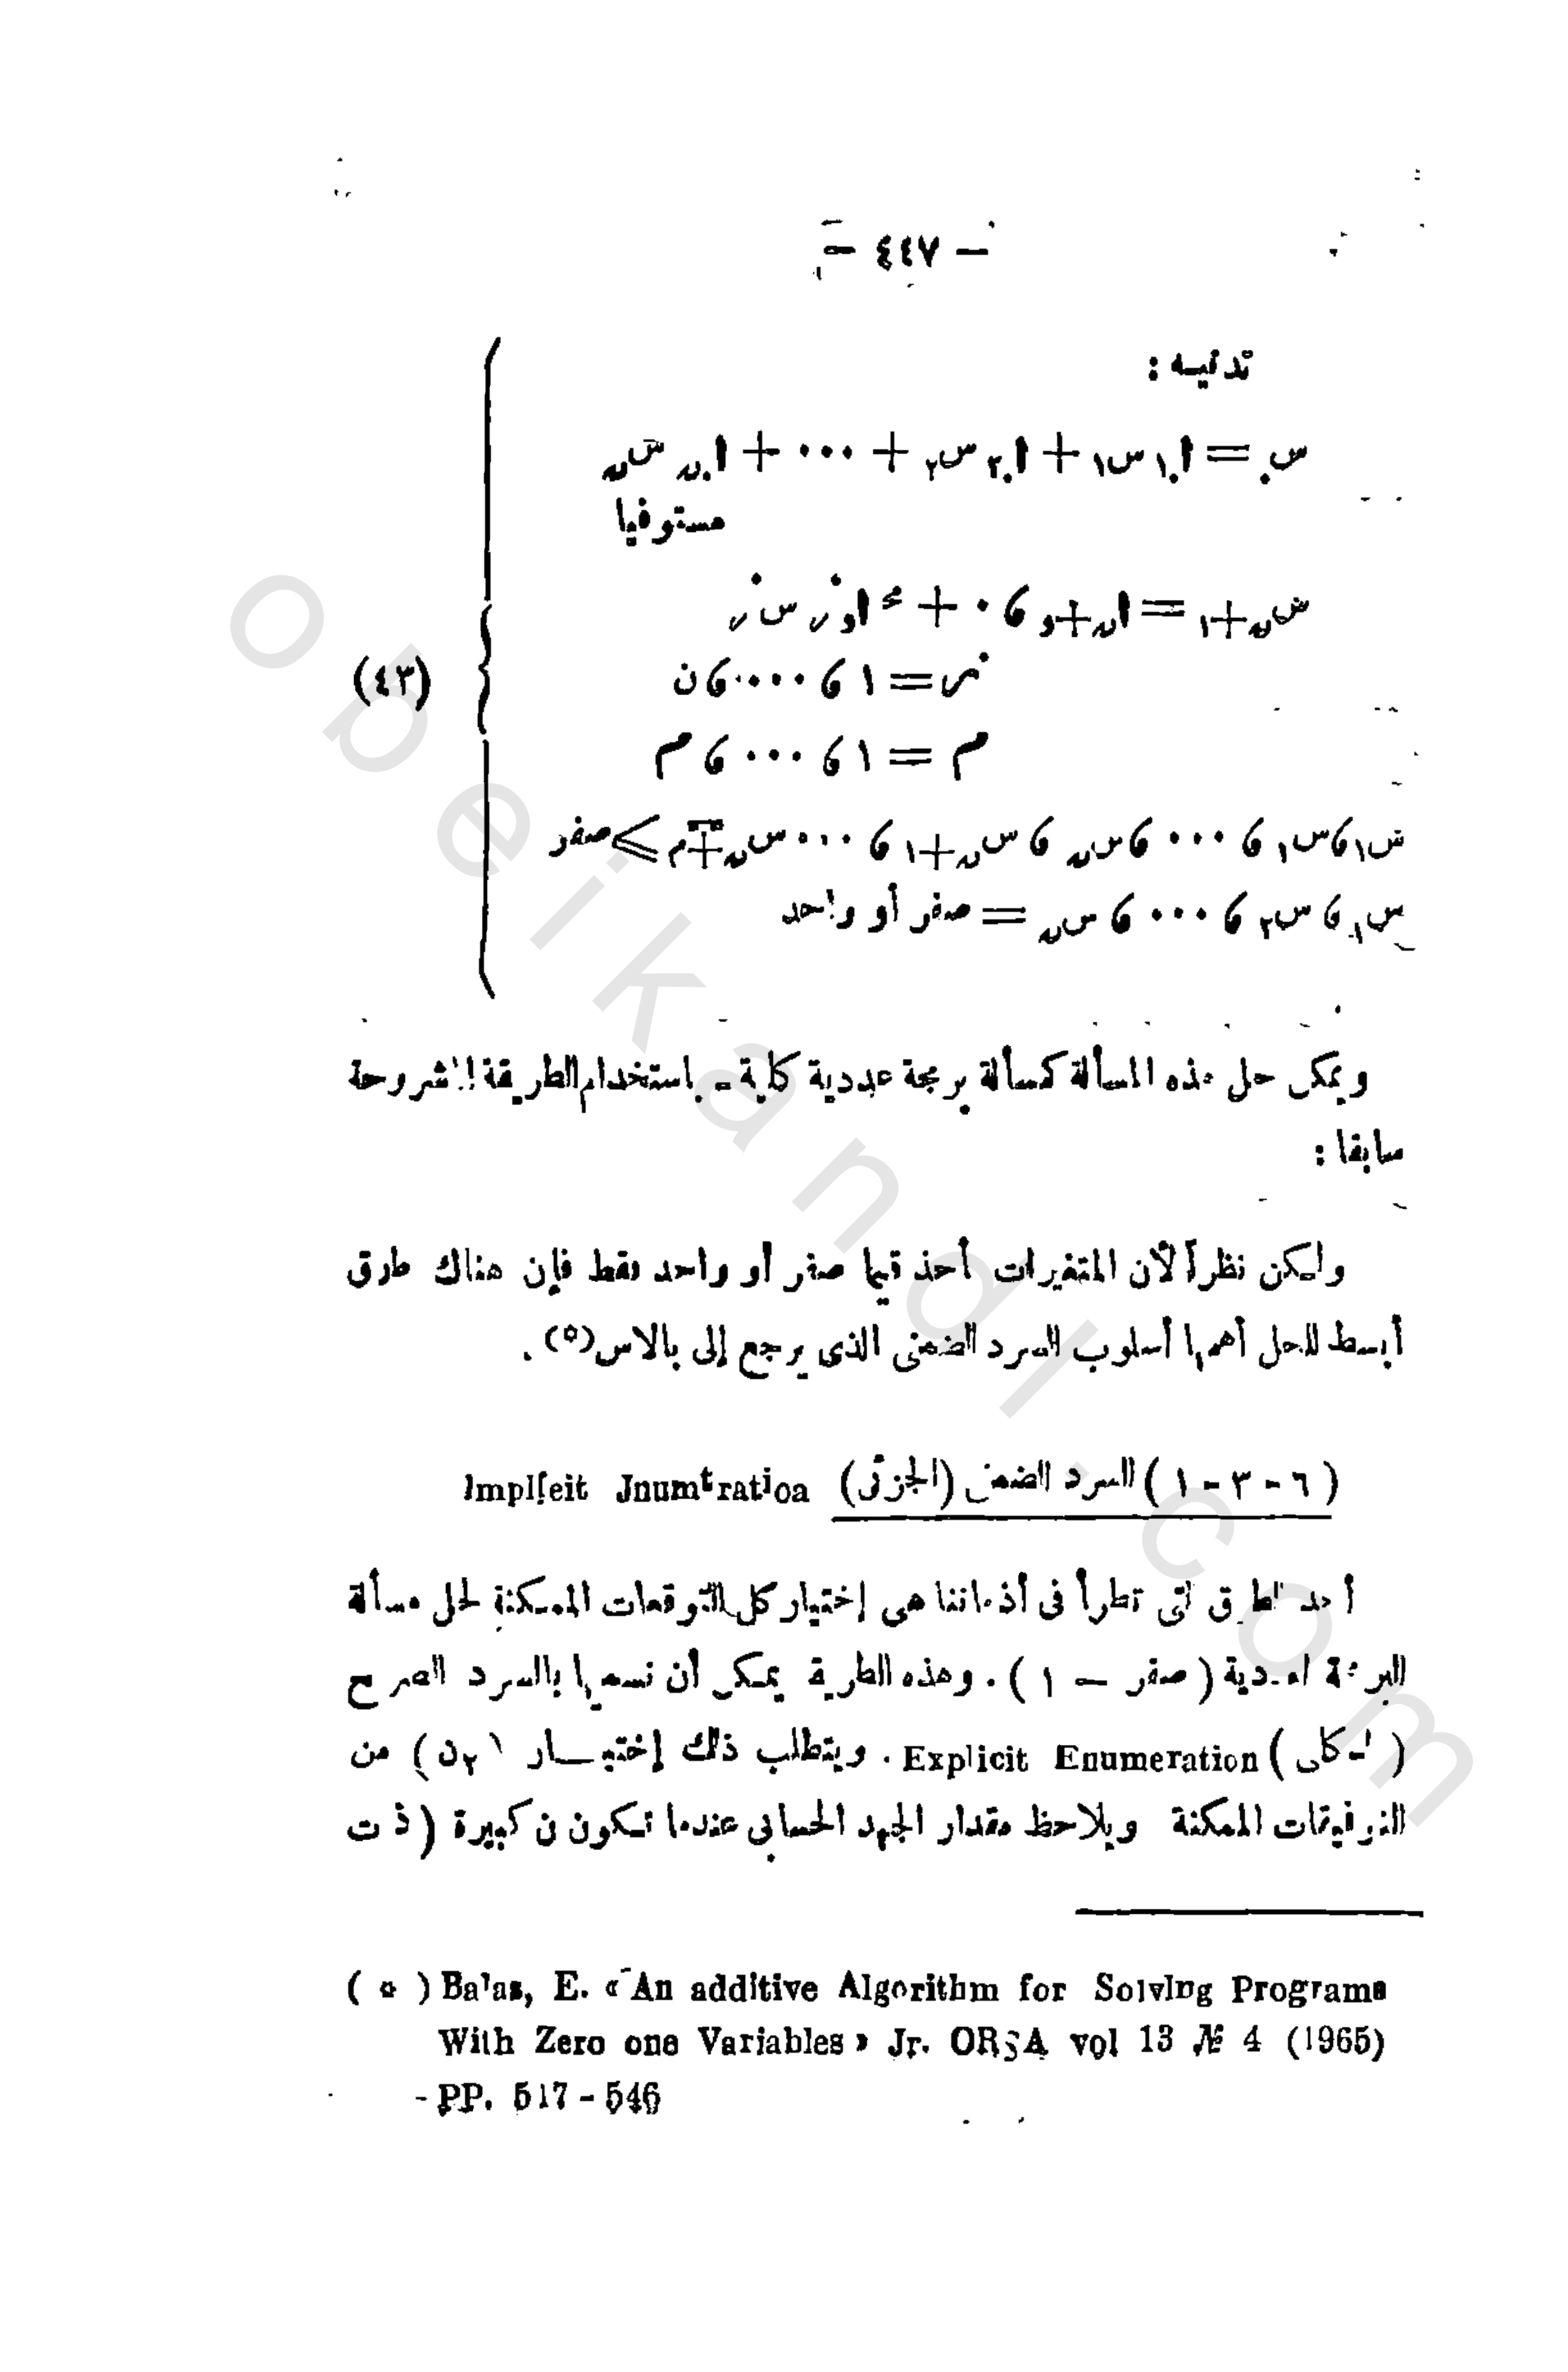 — ٤٤٧ —
تدنيه :
س. = ا.١ س١ + ا.٢ س٢ + ... + ا.ن سن
مستوفيا
(٤٣)
م = ١ ، ... ، م
س١ ، س٢ ، ... ، سن = صفر أو واحد
ويمكن حل هذه المسألة كمسألة برمجة عددية كلية - باستخدام الطريقة المشروحة
سابقا :
ولكن نظراً لأن المتغيرات تأخذ قيما صفر أو واحد فقط فإن هناك طرق
أبسط للحل أهمها أسلوب السرد الضمنى الذى يرجع إلى بالاس(٥) .
( ٦ - ٣ - ١ ) السرد الضمنى (الجزئى) Implieit Jnumtratioa
أحد الطرق التى تطرأ فى أذهاننا هى إختيار كل التوقعات الممكنة لحل مسألة
البرمجة العددية ( صفر — ١ ) . وهذه الطريقة يمكن أن نسميها بالسرد الصريح
( الكلى ) Explicit Enumeration . ويتطلب ذلك إختيار (٢ن) من
التوفيقات الممكنة ويلاحظ مقدار الجهد الحسابى عندما تكون ن كبيرة ( ذات
( ٥ ) Balas, E. « An additive Algorithm for Solving Programs
With Zero one Variables » Jr. ORSA vol 13 № 4 (1965)
- PP. 517 - 546
obeikandl.com